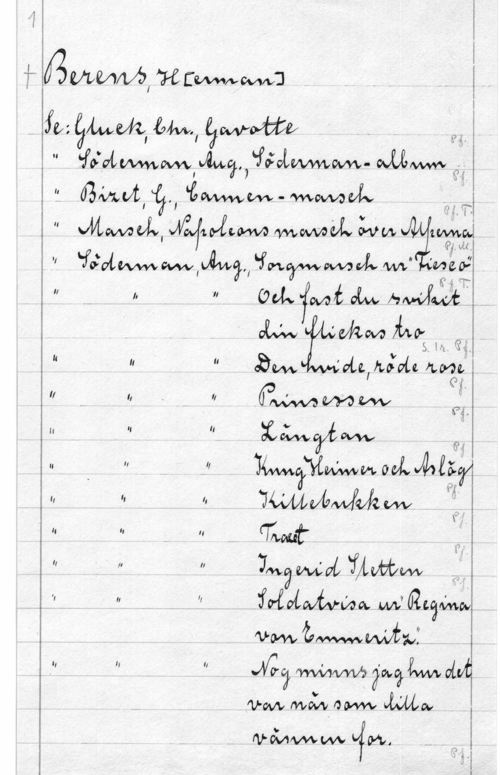 1
† Berens, H[erman]
Se: Gluck, Chr., Gavotte
Pf.
" Söderman, Aug., Söderman-album
Pf.
" Bizet, G., Carmen-marsch
Pf. T.
" Marsch, Napoleons marsch över Alperna
Pf. M
" Söderman, Aug., Sorgmarsch ur "Fiesco"
Pf. T.
" " " Och fast du svikit
din flickas tro
S. 1r. Pf.
" " " Den hvide, röde rose
Pf.
" " " Prinsessen
Pf.
" " " Längtan
Pf
" " " Kung Heimer och Aslög
Pf.
" " " Killebukken
Pf.
" " " Traet
Pf.
" " " Ingerid Sletten
Pf.
" " " Soldatvisa ur "Regina
von Emmeritz."
" " " Nog minns jag hur det
var när som lilla
vännen for.
Pf.